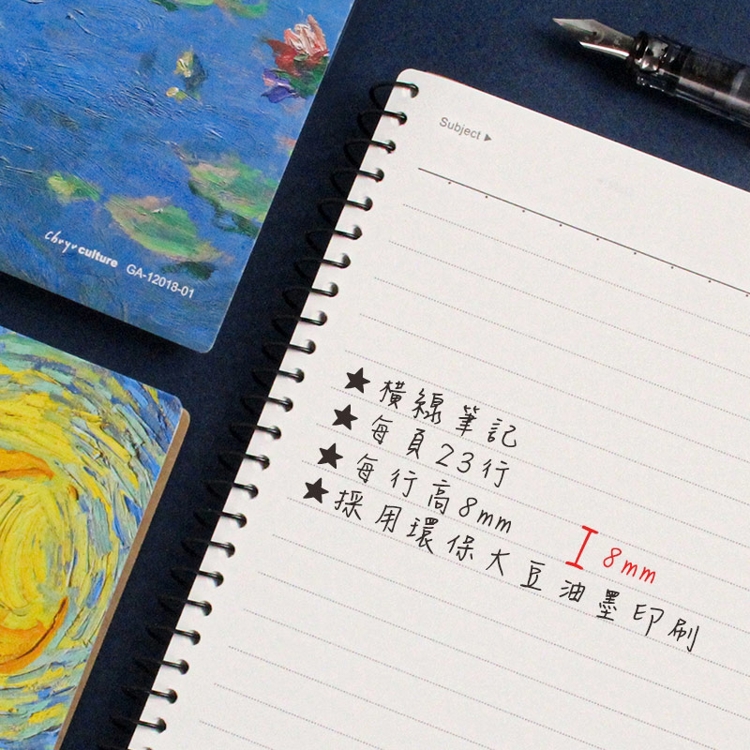 Chryi culture GA-12018-01
Subject ▶
★橫線筆記
★每頁23行
★每行高8mm
★採用環保大豆油墨印刷
8mm